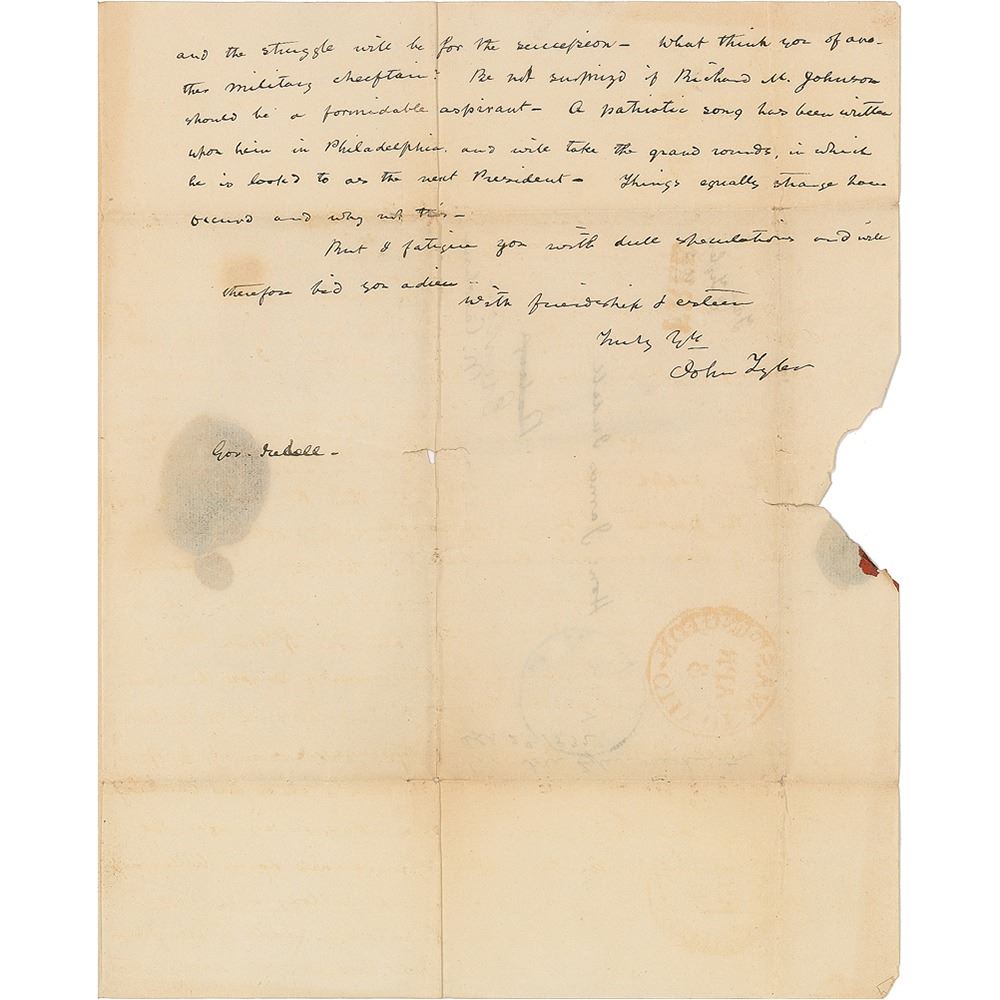 and the struggle will be for the succession - What think you of ano-
ther military cheiftain? Be not surprizd if Richard M. Johnson
should be a formidable aspirant - A patriotic song has been written
upon him in Philadelphia. and will take the grand rounds, in which
he is look'd to as the next President - Things equally strange have
occurd and why not this -
But I fatigue you with dull speculations and will
therefore bid you adieu -
With friendship & esteem
Truly Yrs
John Tyler
Gov. Iredell -
Hon: James Iredell
Raleigh
WASHINGTON
APR
8